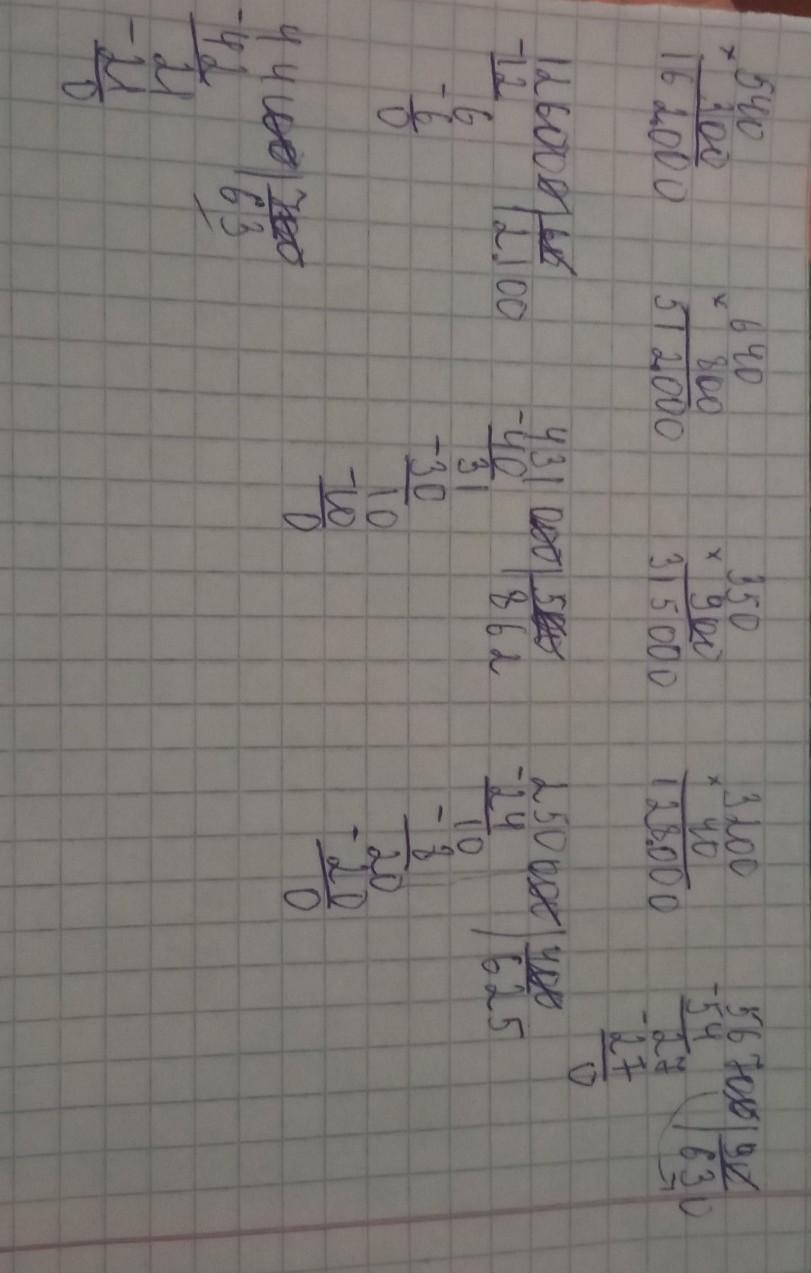 540
× 300
162000
640
× 800
512000
350
× 900
315000
3200
× 40
128000
56700|90
-54 |630
27
-27
0
126000|60
-12 |2100
6
-6
0
431000|500
-40 |862
31
-30
10
-10
0
250000|400
-24 |625
10
-8
20
-20
0
44100|700
-42 |63
21
-21
0